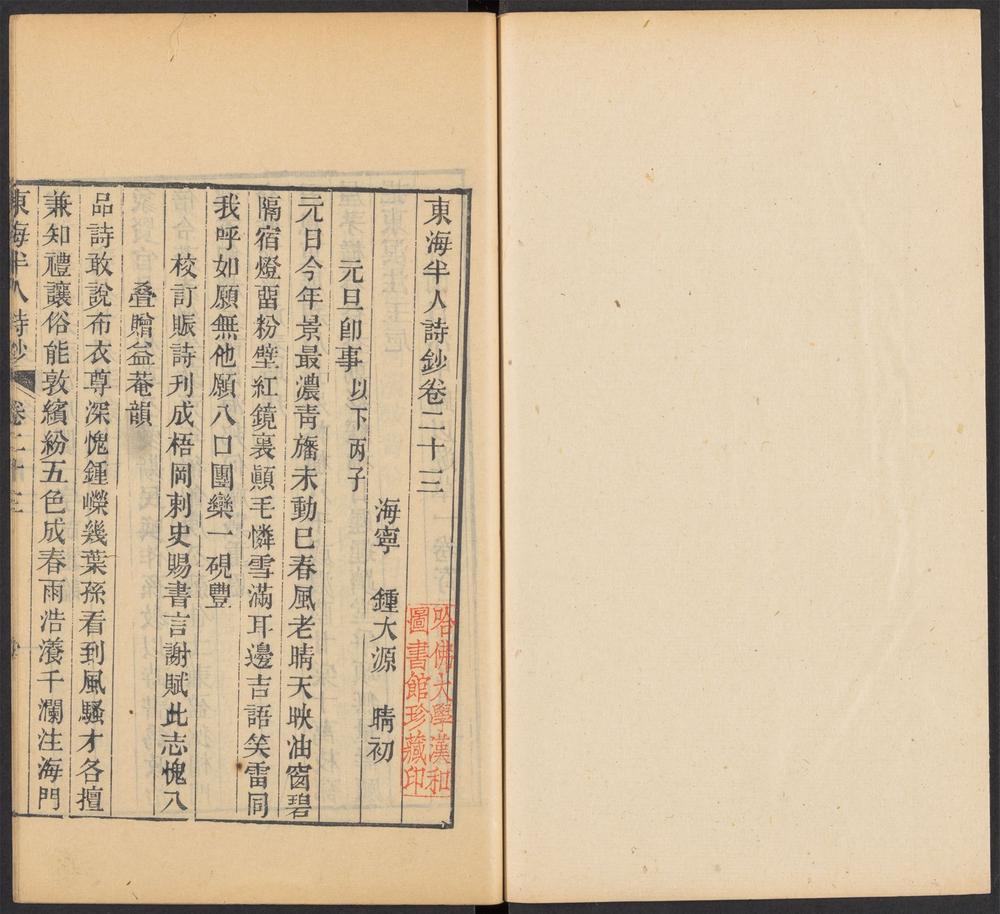 東海半人詩鈔卷二十三
哈佛大學漢和
圖書館珍藏印
海寧　鍾大源　晴初
元旦卽事　以下丙子
元日今年景最濃靑旛未動巳春風老晴天映油窗碧
隔宿燈畱粉壁紅鏡裏顚毛憐雪滿耳邊吉語笑雷同
我呼如願無他願八口團欒一硯豐
校訂賑詩刋成梧岡刺史賜書言謝賦此志愧八
叠贈益菴韻
品詩敢說布衣尊深愧鍾嶸幾葉孫看到風騷才各擅
兼知禮讓俗能敦繽紛五色成春雨浩瀁千瀾注海門
東海半人詩鈔　卷二十三